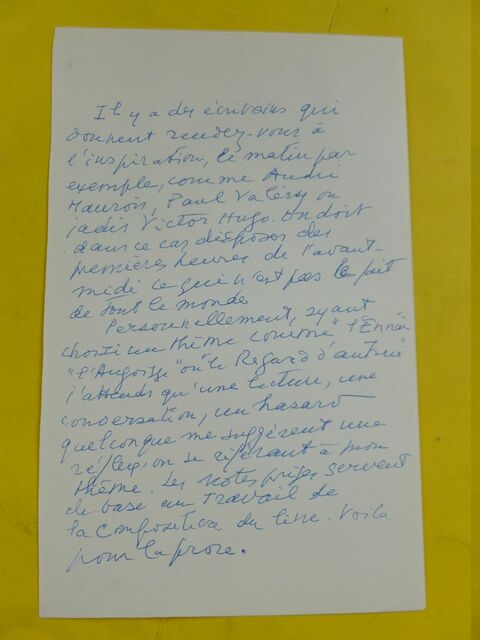 Il y a des écrivains qui
donnent rendez-vous à
l'inspiration, le matin par
exemple, comme André
Maurois, Paul Valéry ou
jadis Victor Hugo. On doit
dans ce cas disposer des
premières heures de l'avant-
midi ce qui n'est pas le fait
de tout le monde
Personnellement, ayant
choisi un thème comme "l'Ennui"
"l'Angoisse" ou "le Regard d'autrui"
j'attends qu'une lecture, une
conversation, un hasard
quelconque me suggèrent une
réflexion se référant à mon
thème. Les notes prises servent
de base au travail de
la composition du livre. Voilà
pour la prose.